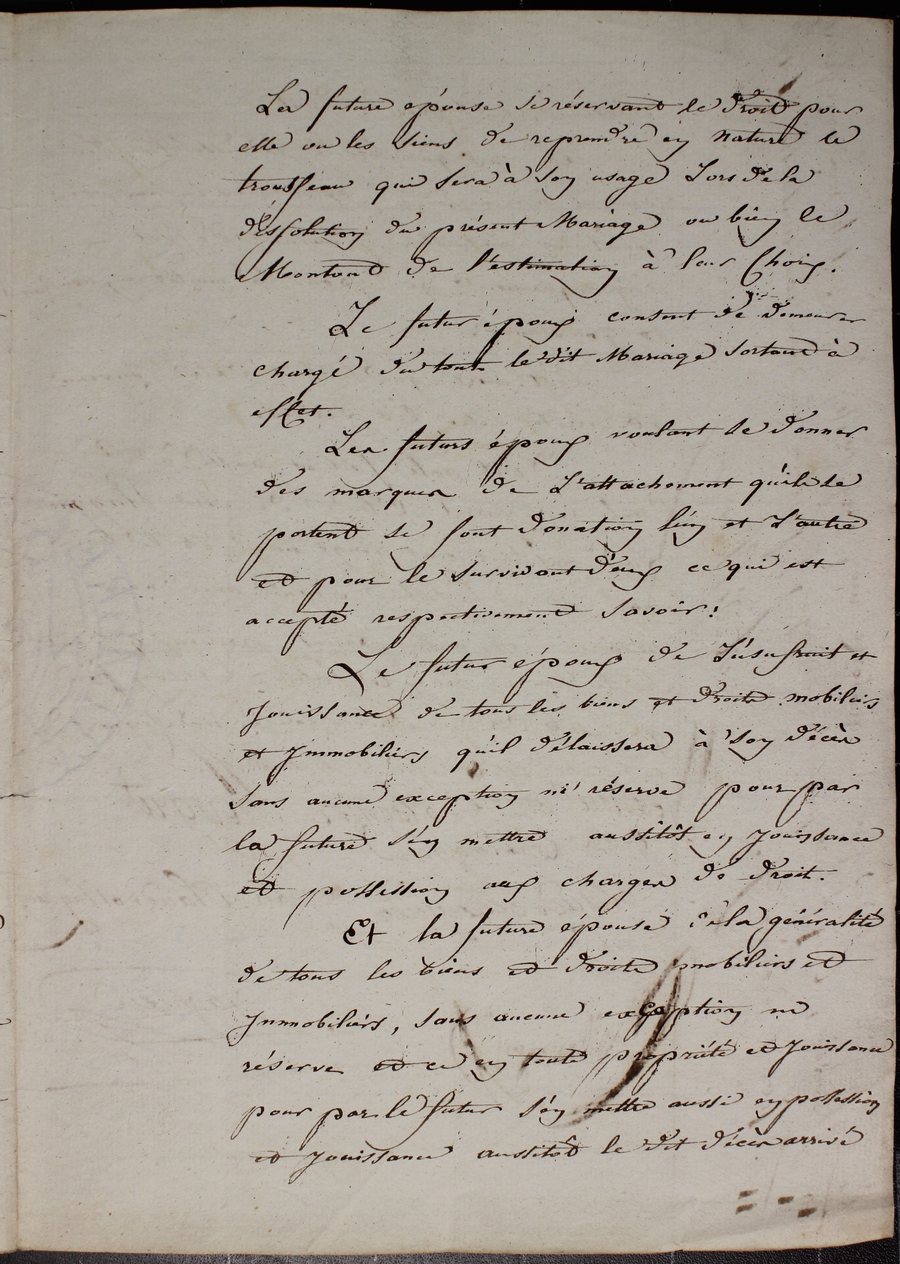 La future épouse se réservant le droit pour
elle ou les siens de reprendre en nature le
trousseau qui sera à son usage Lors de la
dissolution du présent Mariage ou bien le
Montand de l'estimation à leur Choix.
Le futur époux consent de demeurer
chargé du tout le dit Mariage sortand à
effet.
Les futurs époux voulant se donner
des marques de L'attachement qu'ils se
portend se font donation l'un et L'autre
et pour le survivant d'eux ce qui est
accepté respectivement Savoir:
Le futur époux de L'usufruit et
Jouissance de tous les biens et droits mobiliers
et Immobiliers qu'il délaissera à son décès
sans aucune exception ni réserve pour par
la future s'en mettre aussitôt en Jouissance
et possession aux charges de droit.
Et la future épouse de la généralité
de tous les biens et droits mobiliers et
Immobiliérs, sans aucune exception ni
réserve et ce en toute propriété et Jouissance
pour par le futur s'en mettre aussi en possession
et Jouissance aussitôt le dit décès arrivé